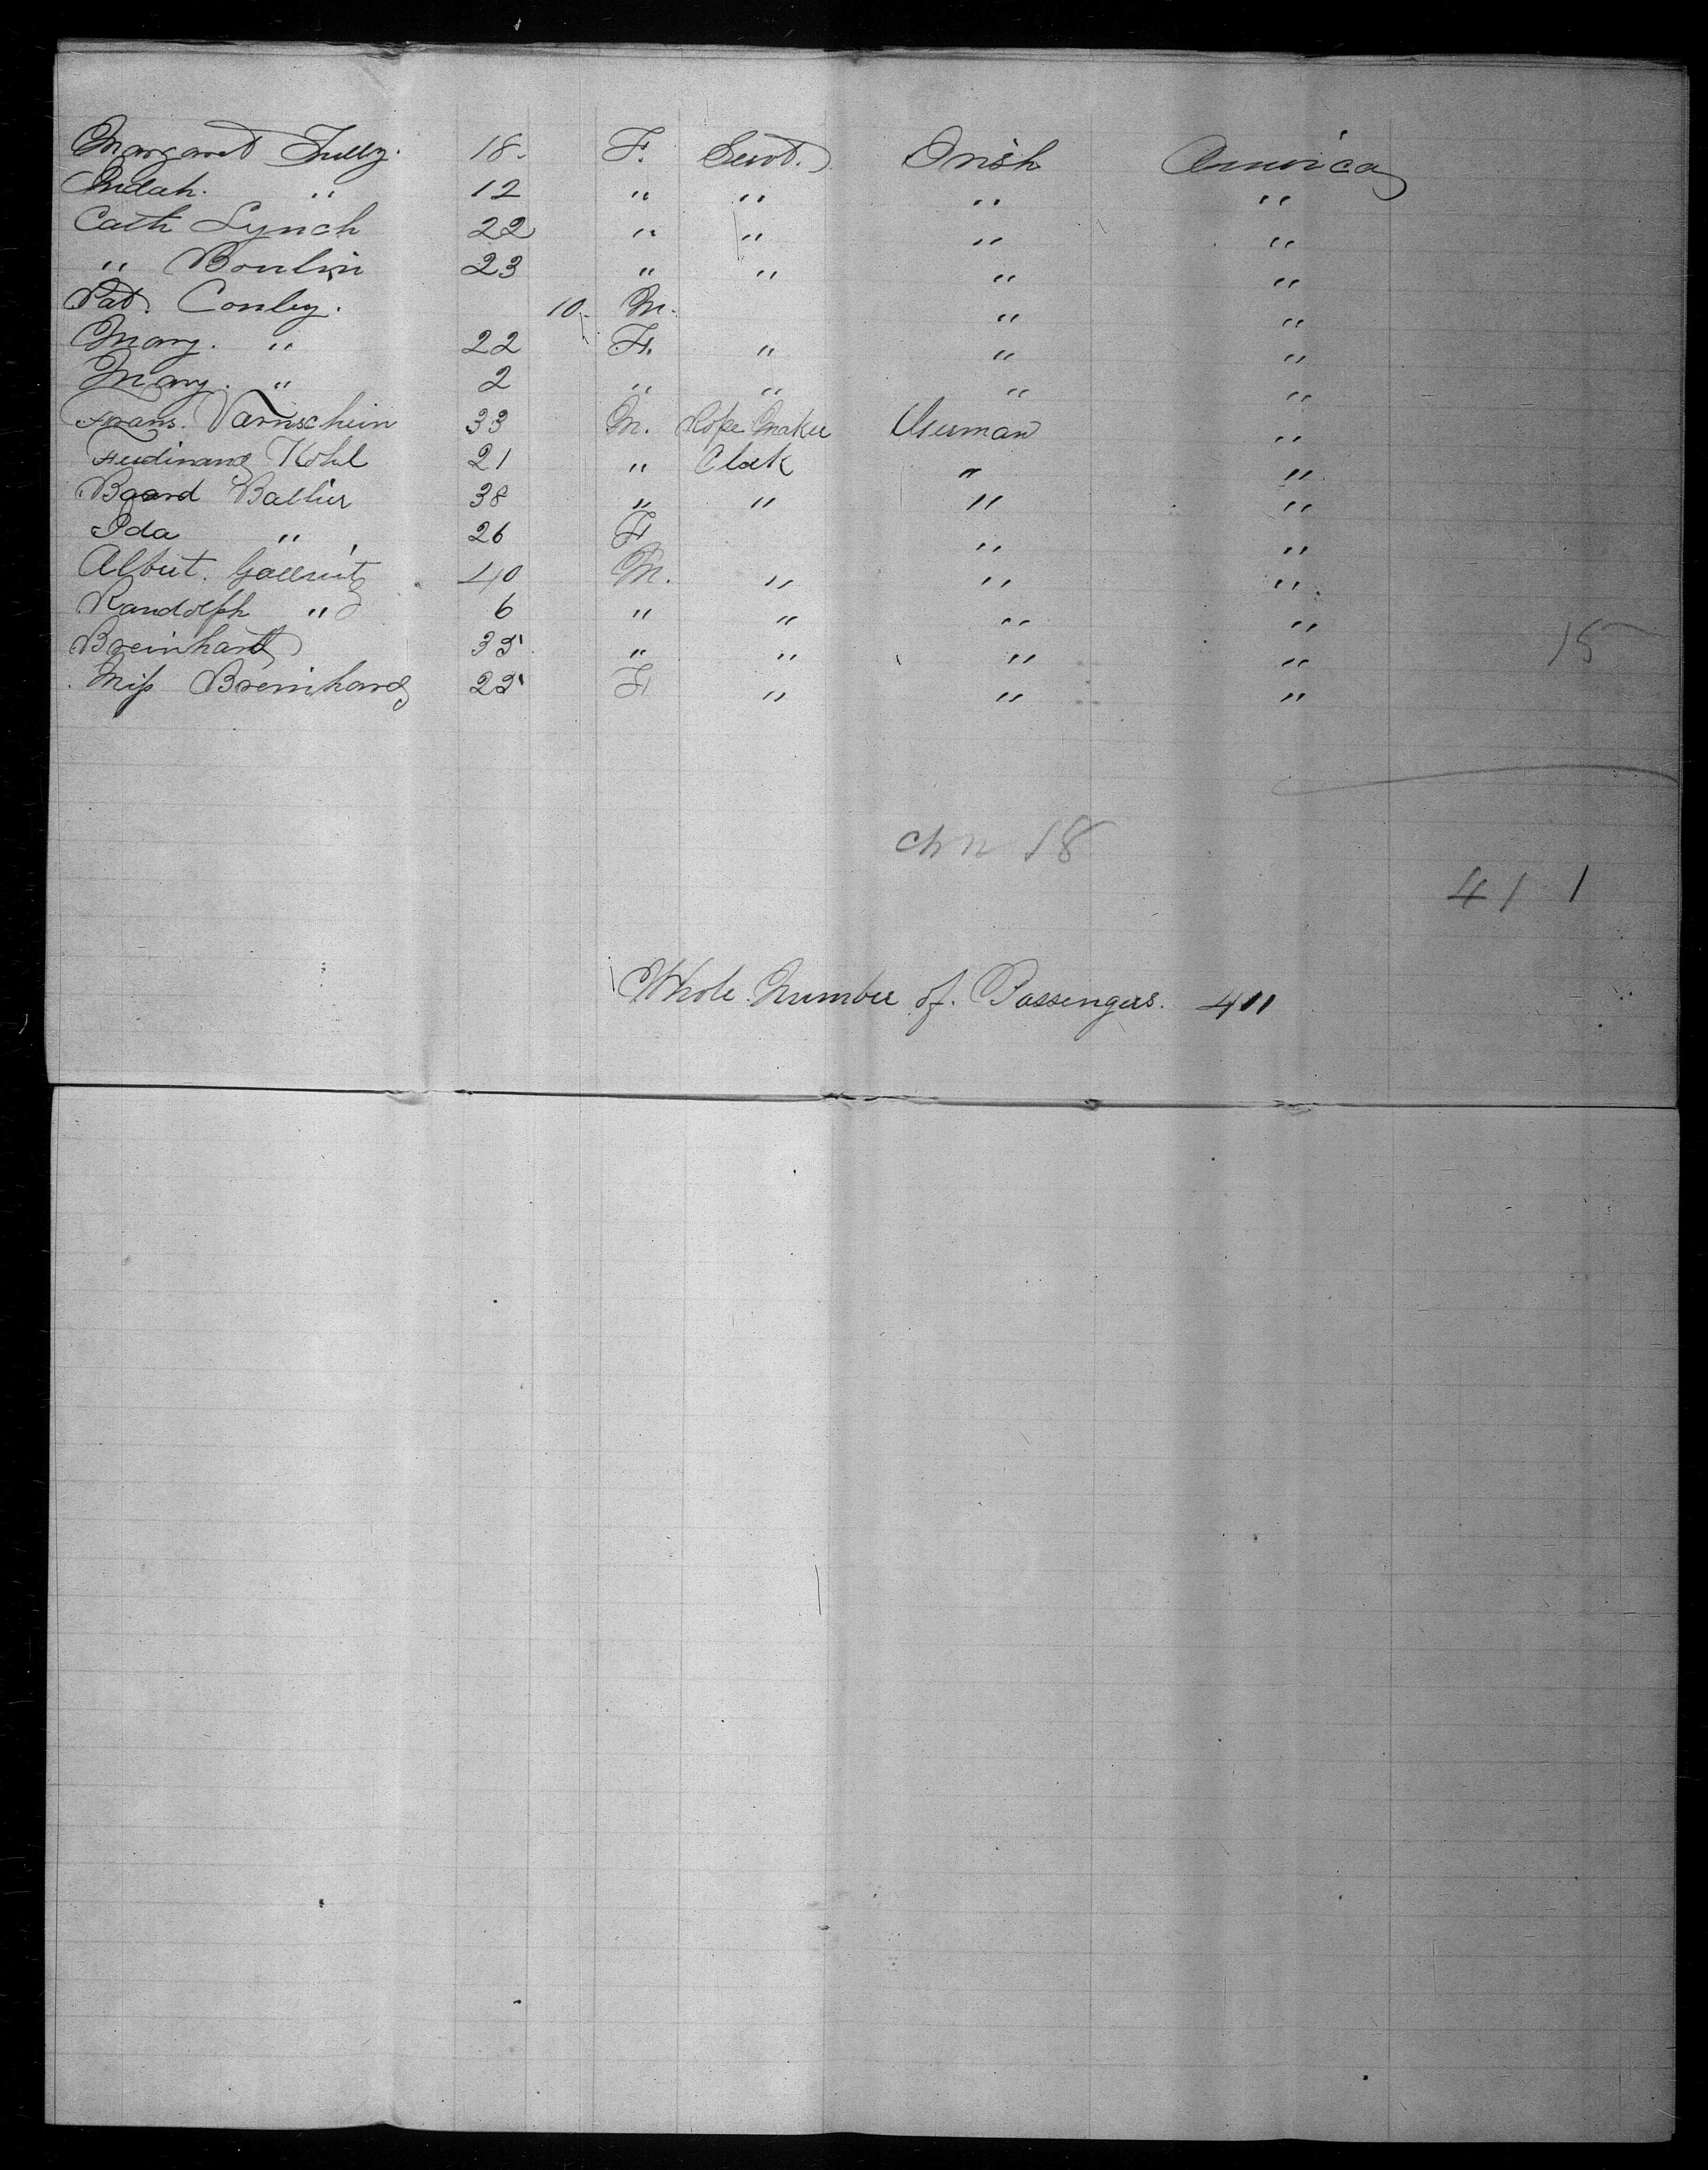 Margaret Tully. 18. F. Servt. Irish America
Judah. " 12 " " " "
Cath Lynch 22 " " " "
" Bonlin 23 " " " "
Pat. Conley. 10. M. " "
Mary. " 22 F. " " "
Mary. " 2 " " " "
Frans. Varnschein 33 M. Rope Maker German "
Ferdinand Kohl 21 " Clerk " "
Baard Ballier 38 " " " "
Ida " 26 F " "
Albert. 40 M. " " "
Randolph " 6 " " " "
Breinhard 35 " " " " 15
Miss Breinhard 25 F " " "
chn 18
411
Whole Number of. Passengers. 411